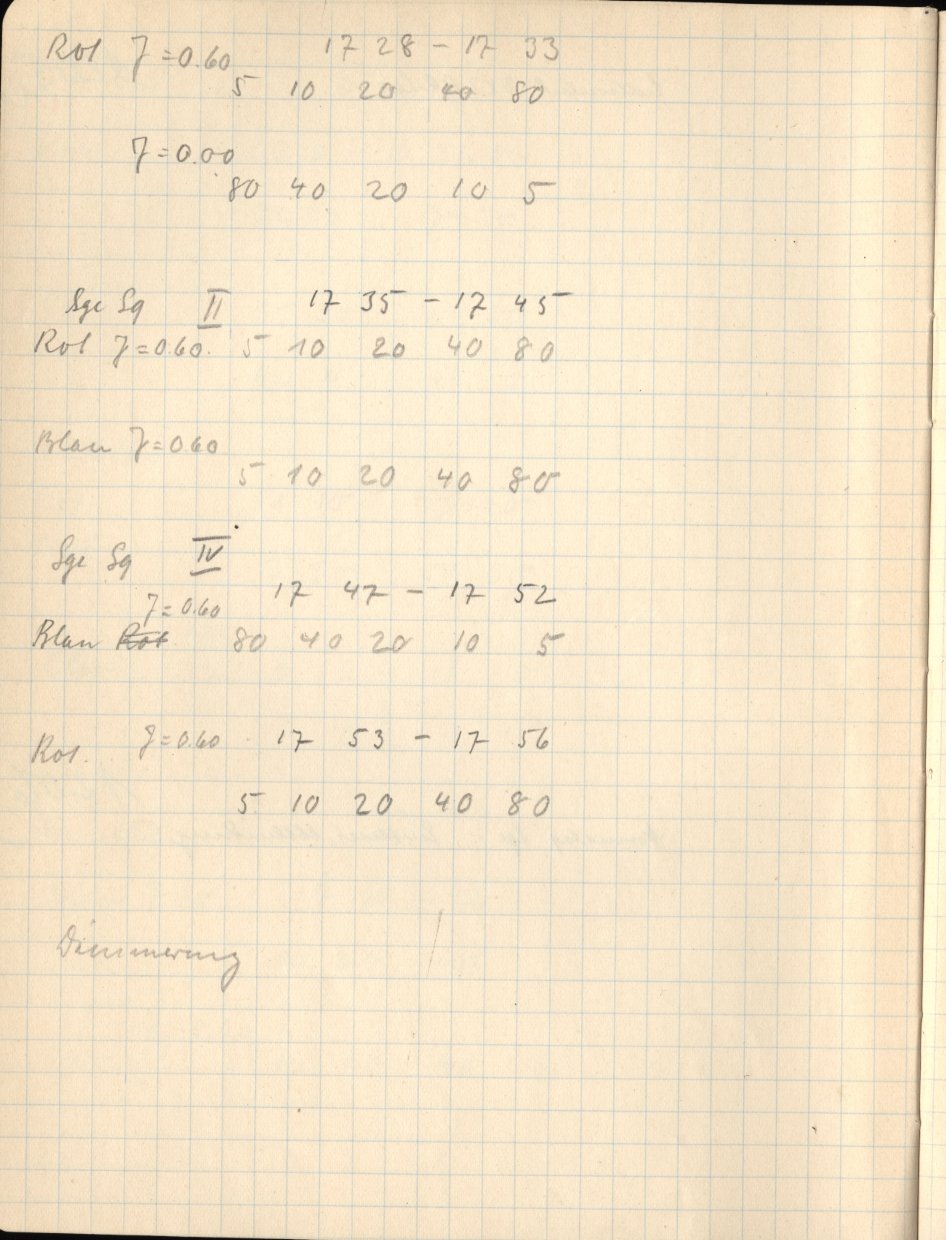 Rot J = 0.60 17 28 – 17 33
5 10 20 40 80
J = 0.00
80 40 20 10 5
Sge Sq II 17 35 – 17 45
Rot J = 0.60. 5 10 20 40 80
Blau J = 0.60
5 10 20 40 80
Sge Sq IV
17 47 – 17 52
J = 0.60
Blau Rot 80 40 20 10 5
Rot. J = 0.60 17 53 – 17 56
5 10 20 40 80
Dämmerung